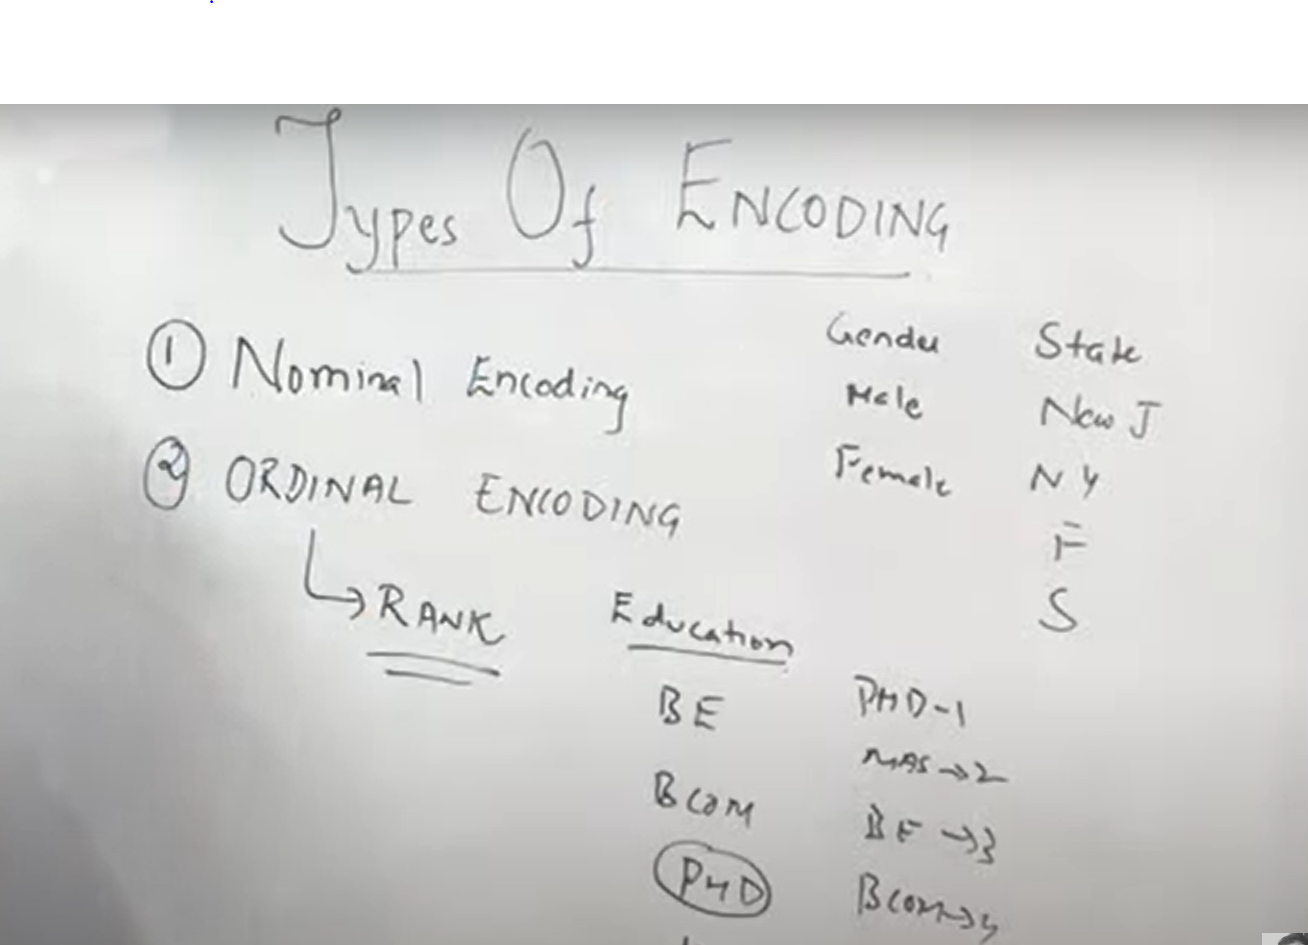 Types Of ENCODING
① Nominal Encoding
② ORDINAL ENCODING
↳ RANK
Gender State
Male New J
Female N Y
F
S
Education
BE PHD-1
MAS→2
BCOM BE→3
PHD BCOM→4